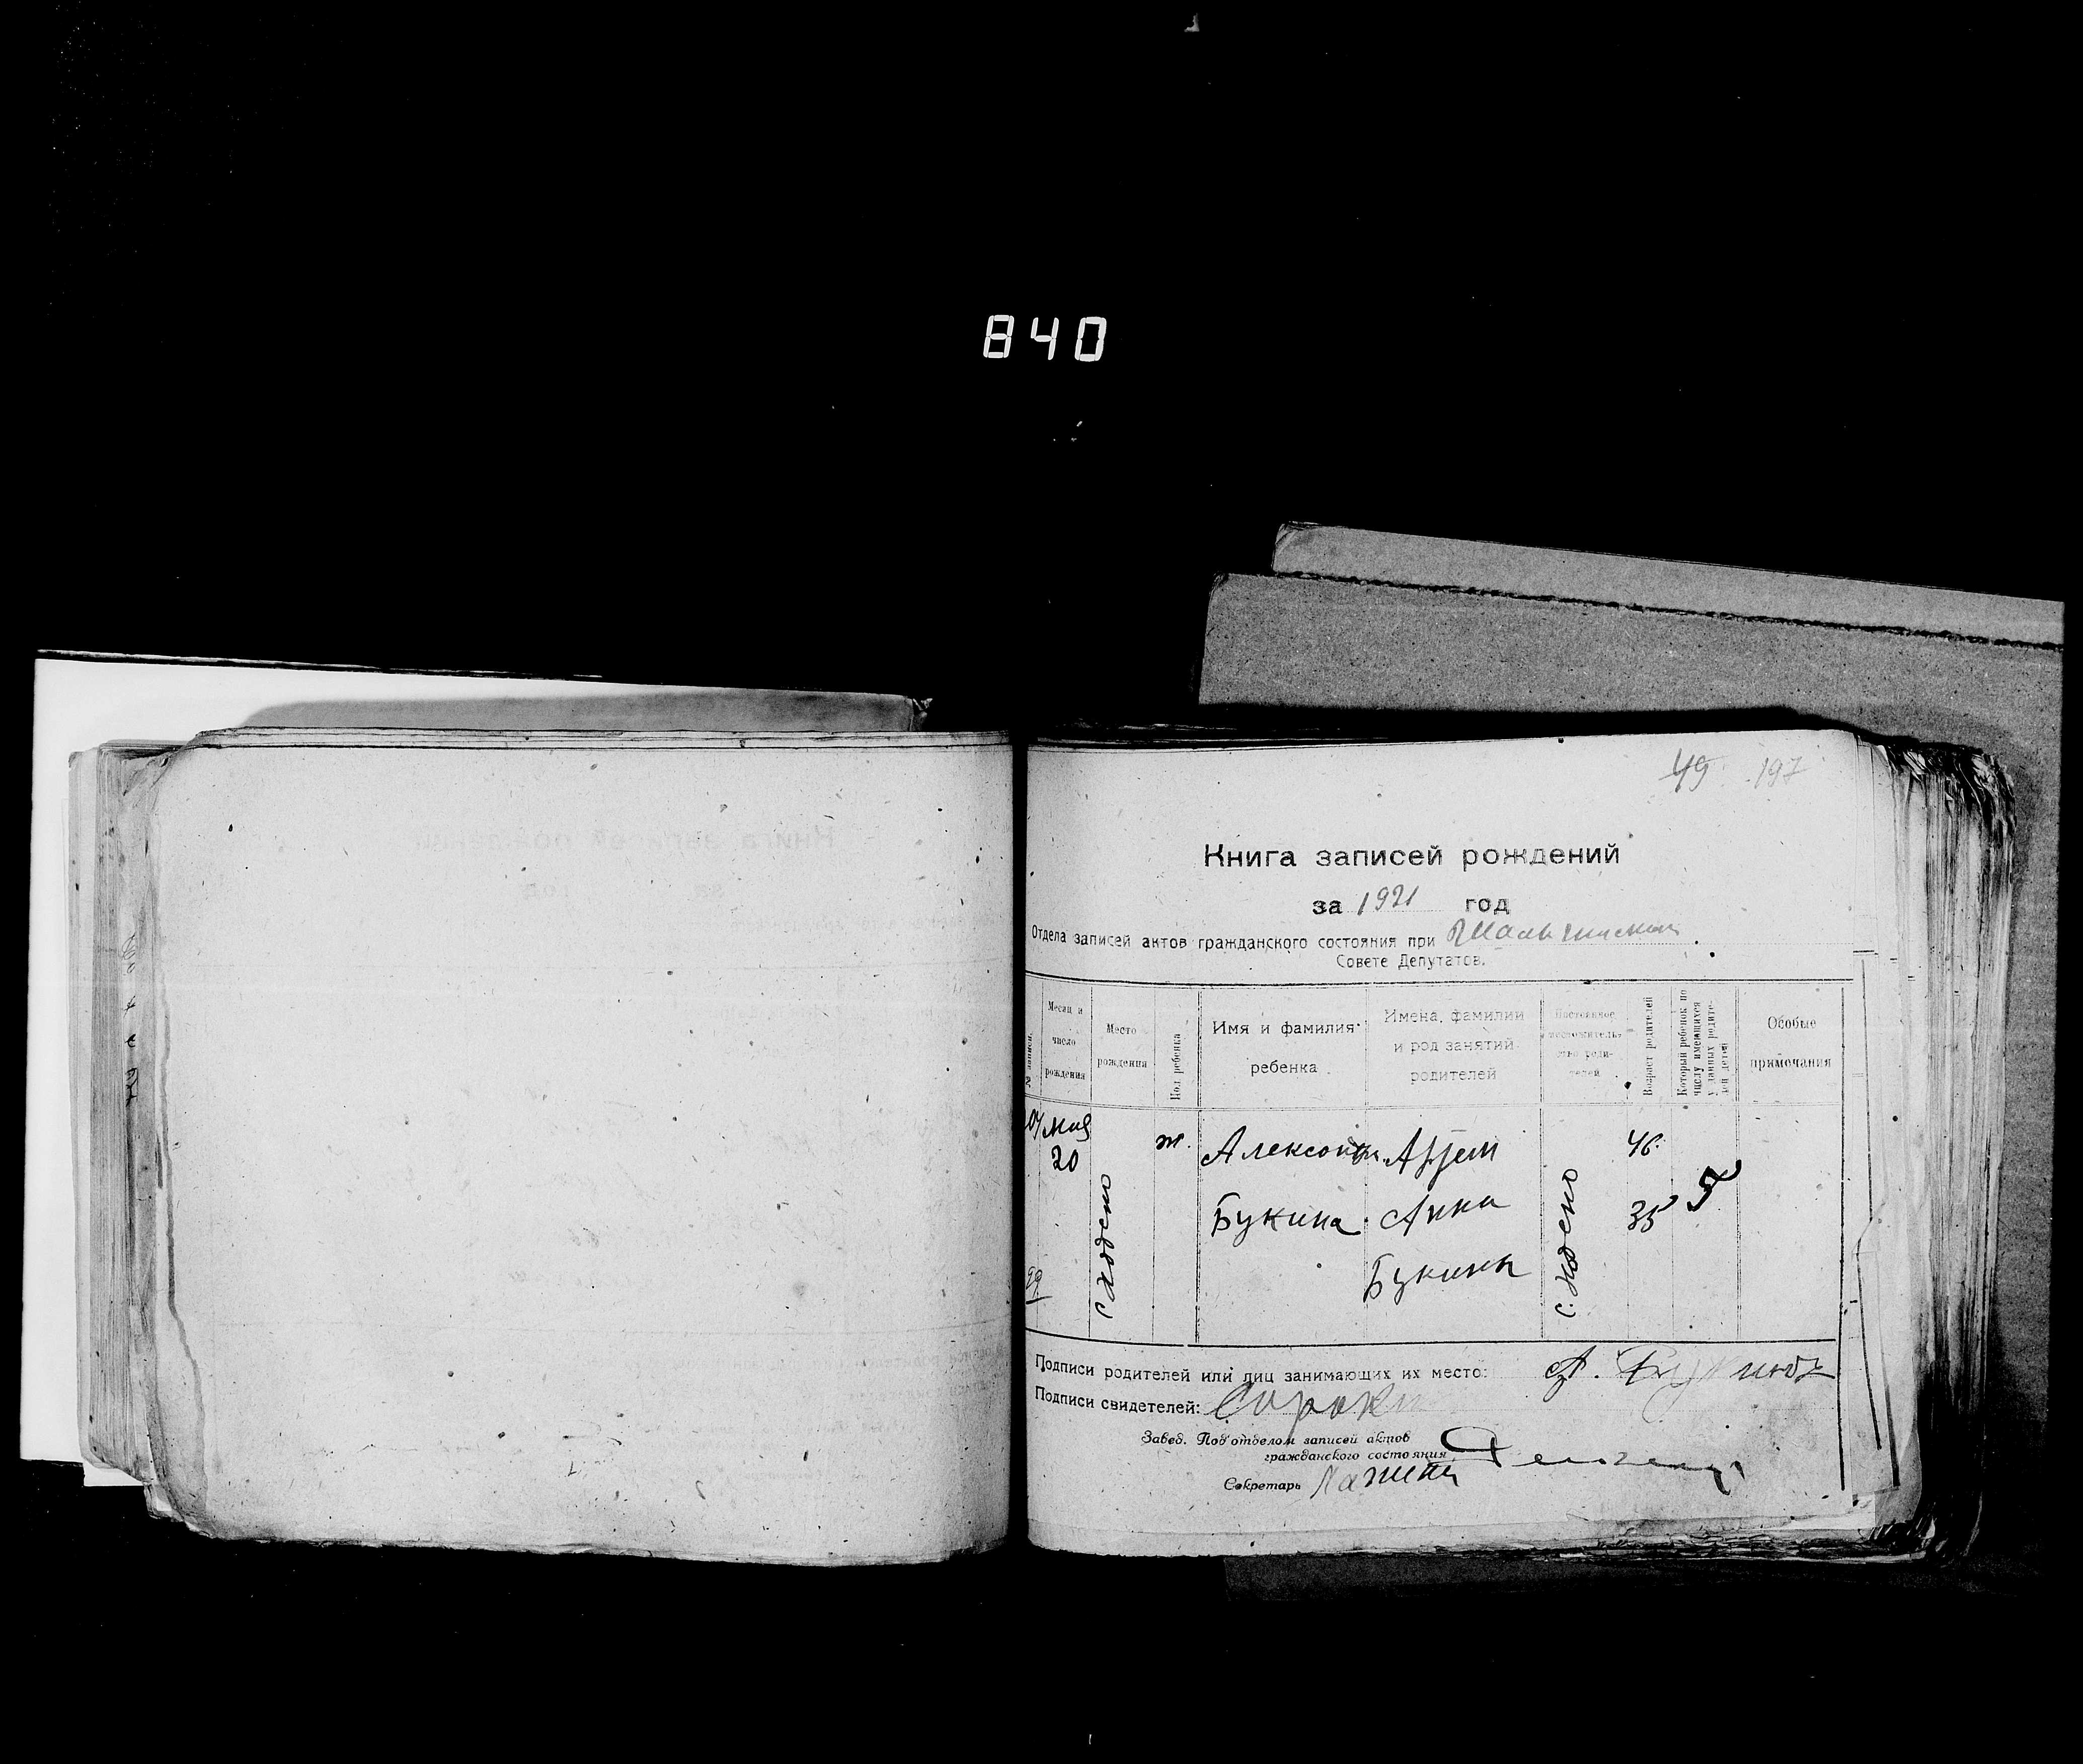 840
49 197
Книга записей рождений
за 1921 год
Отдела записей актов гражданского состояния при
Совете Депутатов.
№ записи.
Месяц и число рождения
Место рождения
Пол ребенка
Имя и фамилия ребенка
Имена, фамилии и род занятий родителей
Постоянное местожитель-ство роди-телей
Возраст родителей
Который ребенок по числу имеющихся у данных родите-лей детей
Особые примечания
Мая
20
ж.
Букина
Артем
Анна
Букины
46.
35
5
Подписи родителей или лиц занимающих их место: А. Букинъ
Подписи свидетелей:
Завед. Под'отделом записей актов
гражданского состояния
Секретарь